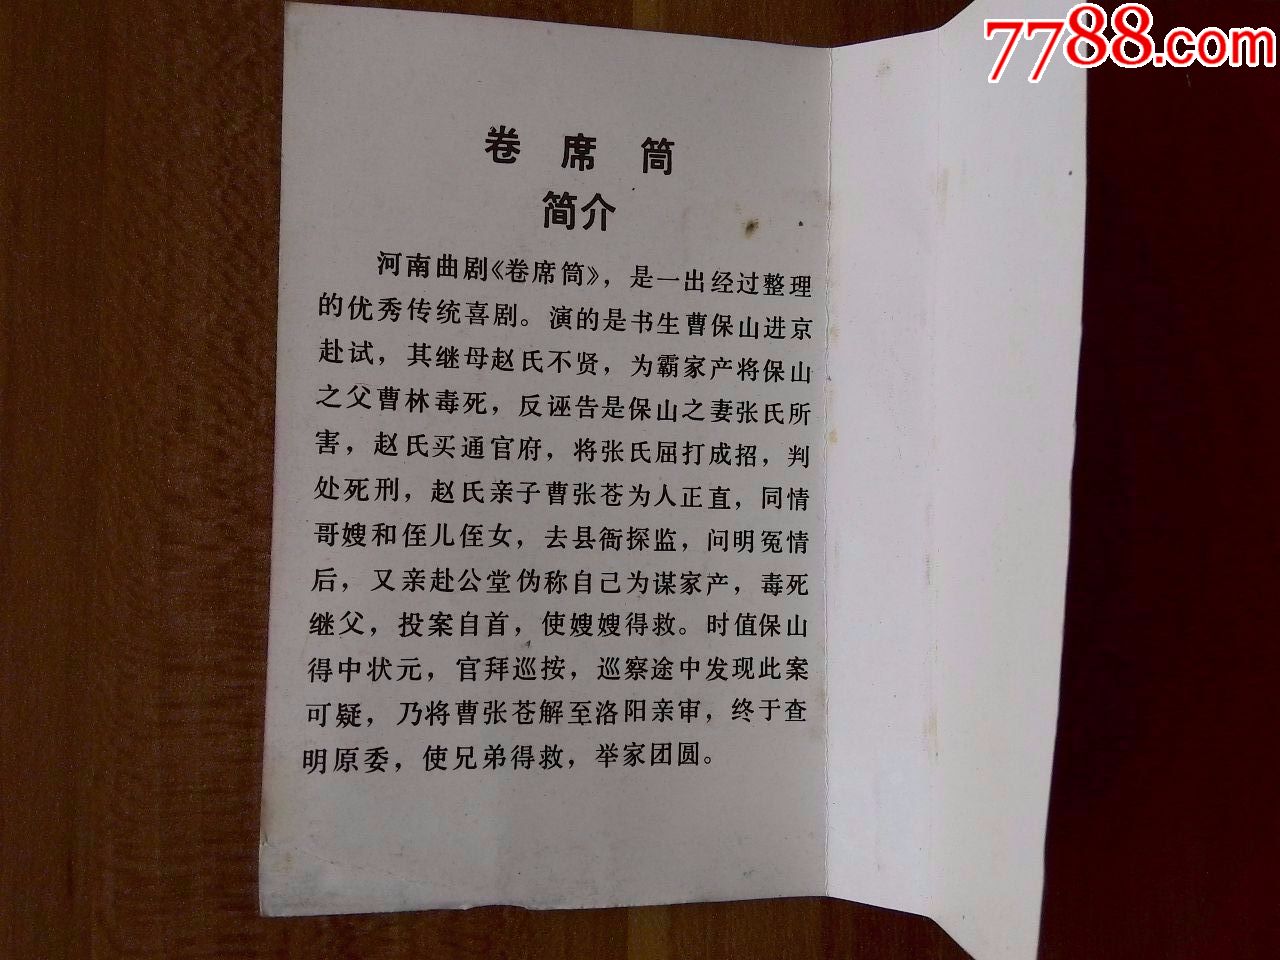 7788.com
卷席筒
简介
河南曲剧《卷席筒》，是一出经过整理
的优秀传统喜剧。演的是书生曹保山进京
赴试，其继母赵氏不贤，为霸家产将保山
之父曹林毒死，反诬告是保山之妻张氏所
害，赵氏买通官府，将张氏屈打成招，判
处死刑，赵氏亲子曹张苍为人正直，同情
哥嫂和侄儿侄女，去县衙探监，问明冤情
后，又亲赴公堂伪称自己为谋家产，毒死
继父，投案自首，使嫂嫂得救。时值保山
得中状元，官拜巡按，巡察途中发现此案
可疑，乃将曹张苍解至洛阳亲审，终于查
明原委，使兄弟得救，举家团圆。